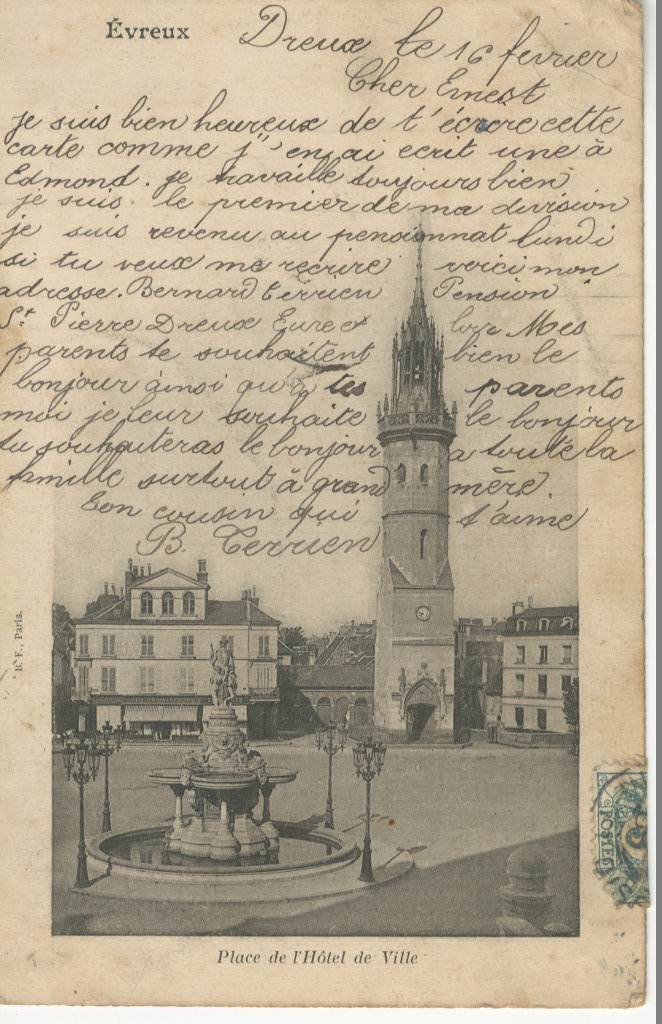 Évreux
Dreux le 16 fevrier
Cher Ernest
je suis bien heureux de t'écrire cette
carte comme j'en ai ecrit une à
Edmond. je travaille toujours bien
je suis le premier de ma division
je suis revenu au pensionnat lundi
si tu veux me recrire voici mon
adresse. Bernard Terrien Pension
St Pierre Dreux Eure et Loir Mes
parents te souhaitent bien le
bonjour ainsi qu'à tes parents
moi je leur souhaite le bonjour
tu souhaiteras le bonjour a toute la
famille surtout à grand mère.
Ton cousin qui t'aime
B. Terrien
B. F., Paris.
POSTES
Place de l'Hôtel de Ville